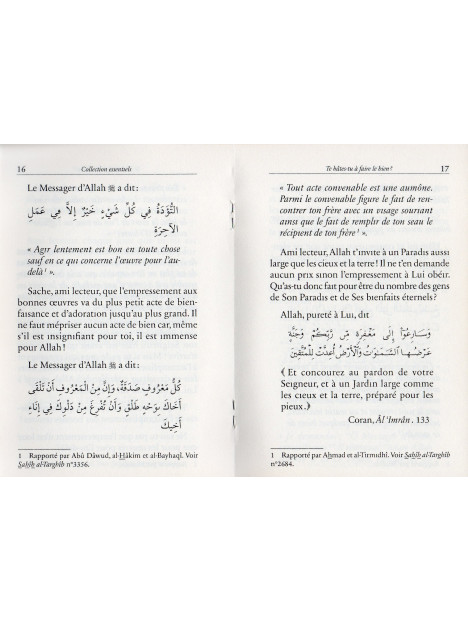 16
Collection essentiels
Le Messager d'Allah ﷺ a dit :
التُّؤَدَةُ فِي كُلِّ شَيْءٍ خَيْرٌ إِلاَّ فِي عَمَلِ
الآخِرَةِ
« Agir lentement est bon en toute chose
sauf en ce qui concerne l'œuvre pour l'au-
delà¹ ».
Sache, ami lecteur, que l'empressement aux
bonnes œuvres va du plus petit acte de bien-
faisance et d'adoration jusqu'au plus grand. Il
ne faut mépriser aucun acte de bien car, même
s'il est insignifiant pour toi, il est immense
pour Allah !
Le Messager d'Allah ﷺ a dit :
كُلُّ مَعْرُوفٍ صَدَقَةٌ، وَإِنَّ مِنْ الْمَعْرُوفِ أَنْ تَلْقَى
أَخَاكَ بِوَجْهٍ طَلْقٍ وَأَنْ تُفْرِغَ مِنْ دَلْوِكَ فِي إِنَاءِ
أَخِيكَ
1 Rapporté par Abû Dâwud, al-Hâkim et al-Bayhaqî. Voir
Sahîh al-Targhîb n°3356.
Te hâtes-tu à faire le bien ?
17
« Tout acte convenable est une aumône.
Parmi le convenable figure le fait de ren-
contrer ton frère avec un visage souriant
ainsi que le fait de remplir de ton seau le
récipient de ton frère¹ ».
Ami lecteur, Allah t'invite à un Paradis aussi
large que les cieux et la terre ! Il ne t'en demande
aucun prix sinon l'empressement à Lui obéir.
Qu'as-tu donc fait pour être du nombre des gens
de Son Paradis et de Ses bienfaits éternels ?
Allah, pureté à Lui, dit :
وَسَارِعُوٓا۟ إِلَىٰ مَغْفِرَةٍ مِّن رَّبِّكُمْ وَجَنَّةٍ
عَرْضُهَا ٱلسَّمَـٰوَٰتُ وَٱلْأَرْضُ أُعِدَّتْ لِلْمُتَّقِينَ
﴾ Et concourez au pardon de votre
Seigneur, et à un Jardin large comme
les cieux et la terre, préparé pour les
pieux. ﴿
Coran, Âl 'Imrân, 133
1 Rapporté par Ahmad et al-Tirmidhî. Voir Sahîh al-Targhîb
n°2684.